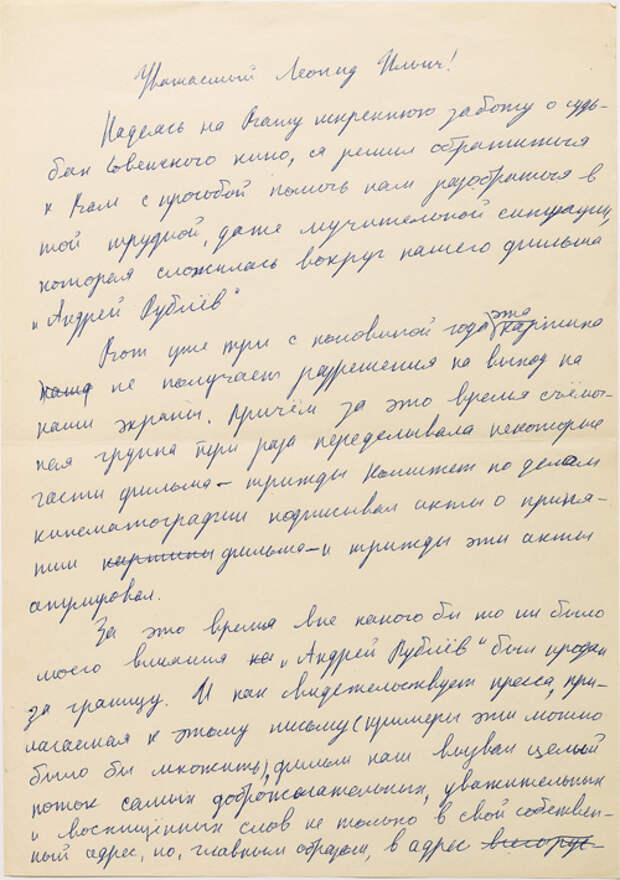 Уважаемый Леонид Ильич!
Надеясь на Вашу искреннюю заботу о судь-
бах Советского кино, я решил обратиться
к Вам с просьбой помочь нам разобраться в
той трудной, даже мучительной ситуации,
которая сложилась вокруг нашего фильма
„Андрей Рублёв"
Вот уже три с половиной года эта картина
наша не получает разрешения на выход на
наши экраны. Причём за это время съёмоч-
ная группа три раза переделывала некоторые
части фильма – трижды Комитет по делам
кинематографии подписывал акты о приня-
тии картины фильма – и трижды эти акты
анулировал.
За это время вне какого бы то ни было
моего влияния на „Андрей Рублёв" был продан
за границу. И как свидетельствует пресса, при-
лагаемая к этому письму (примеры эти можно
было бы множить), фильм наш вызвал целый
поток самых доброжелательных, уважительных
и восхищённых слов не только в свой собствен-
ный адрес, но, главным образом, в адрес